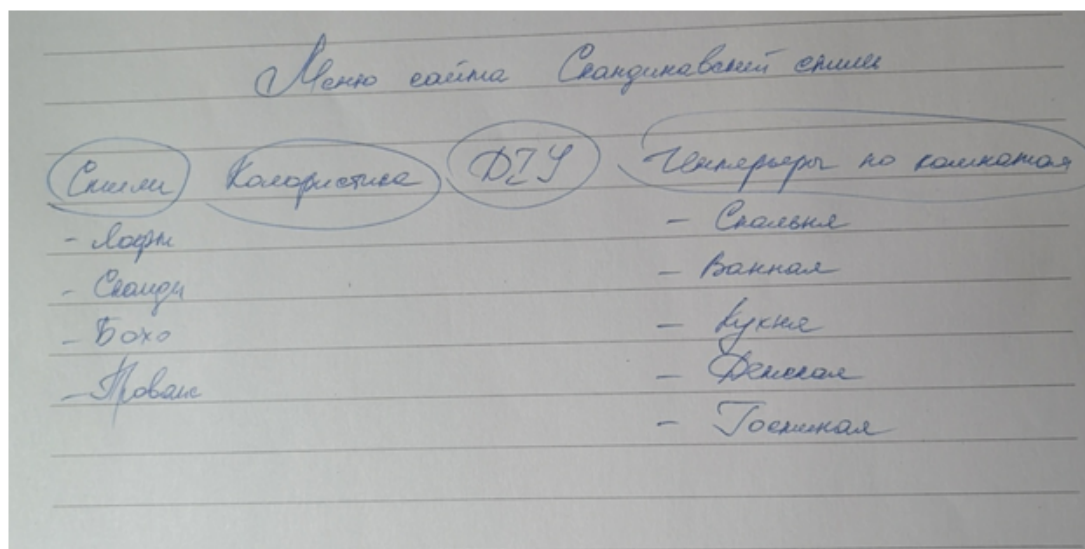 Меню сайта Скандинавский стиль
Стили Колористика DIY Интерьеры по комнатам
- Лофт
- Сканди
- Бохо
- Прованс
- Спальня
- Ванная
- Кухня
- Детская
- Гостиная